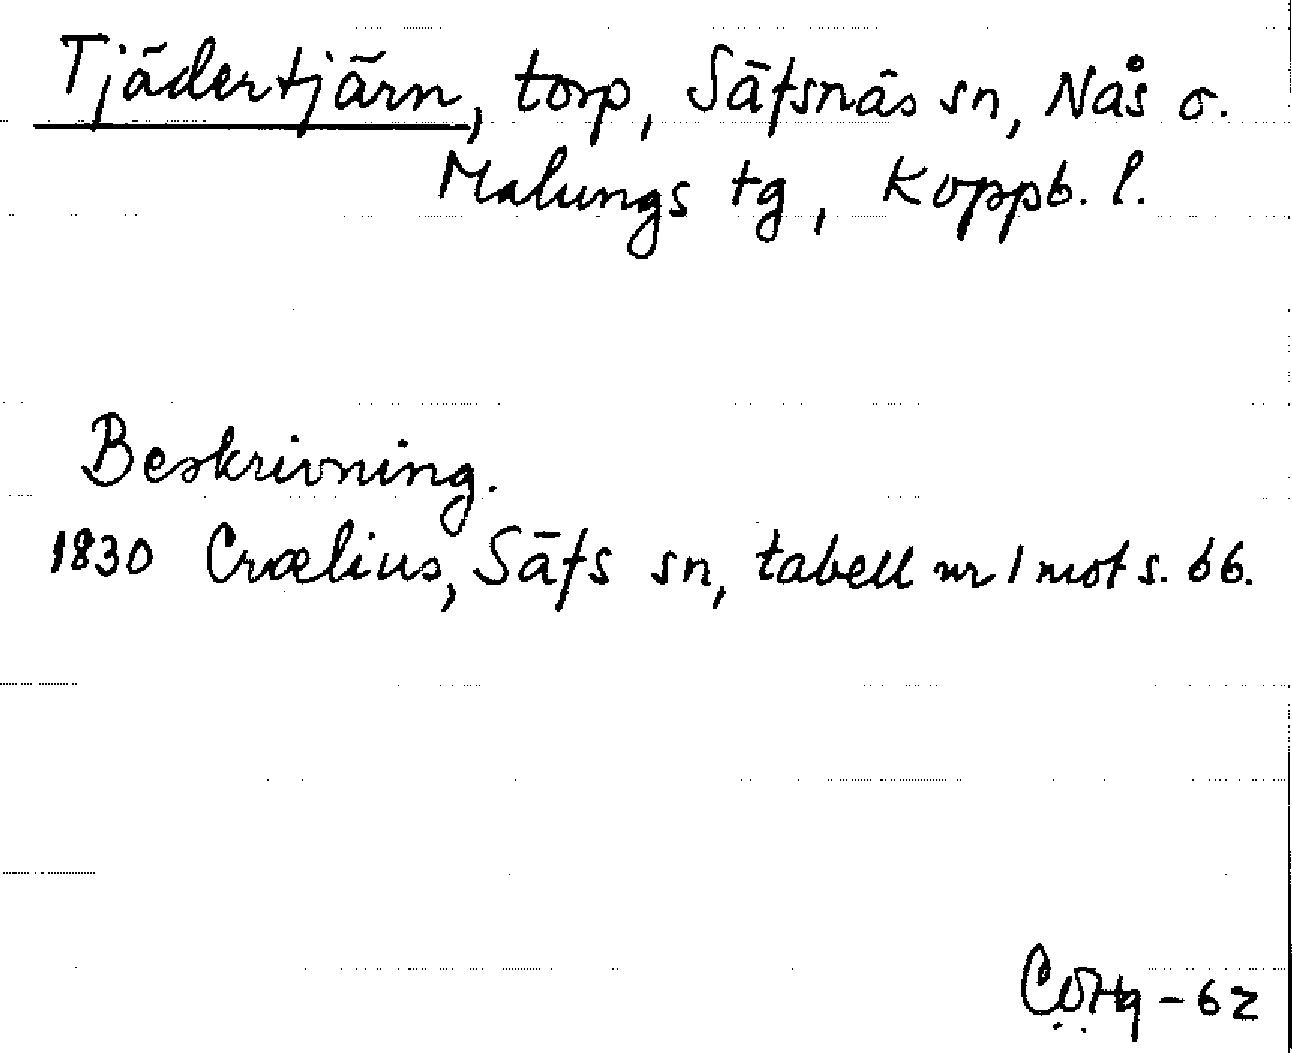 Tjädertjärn, torp, Säfsnäs sn, Nås o.
Malungs tg, Koppb. l.
Beskrivning.
1830 Crælius, Säfs sn, tabell nr 1 mot s. 66.
-62